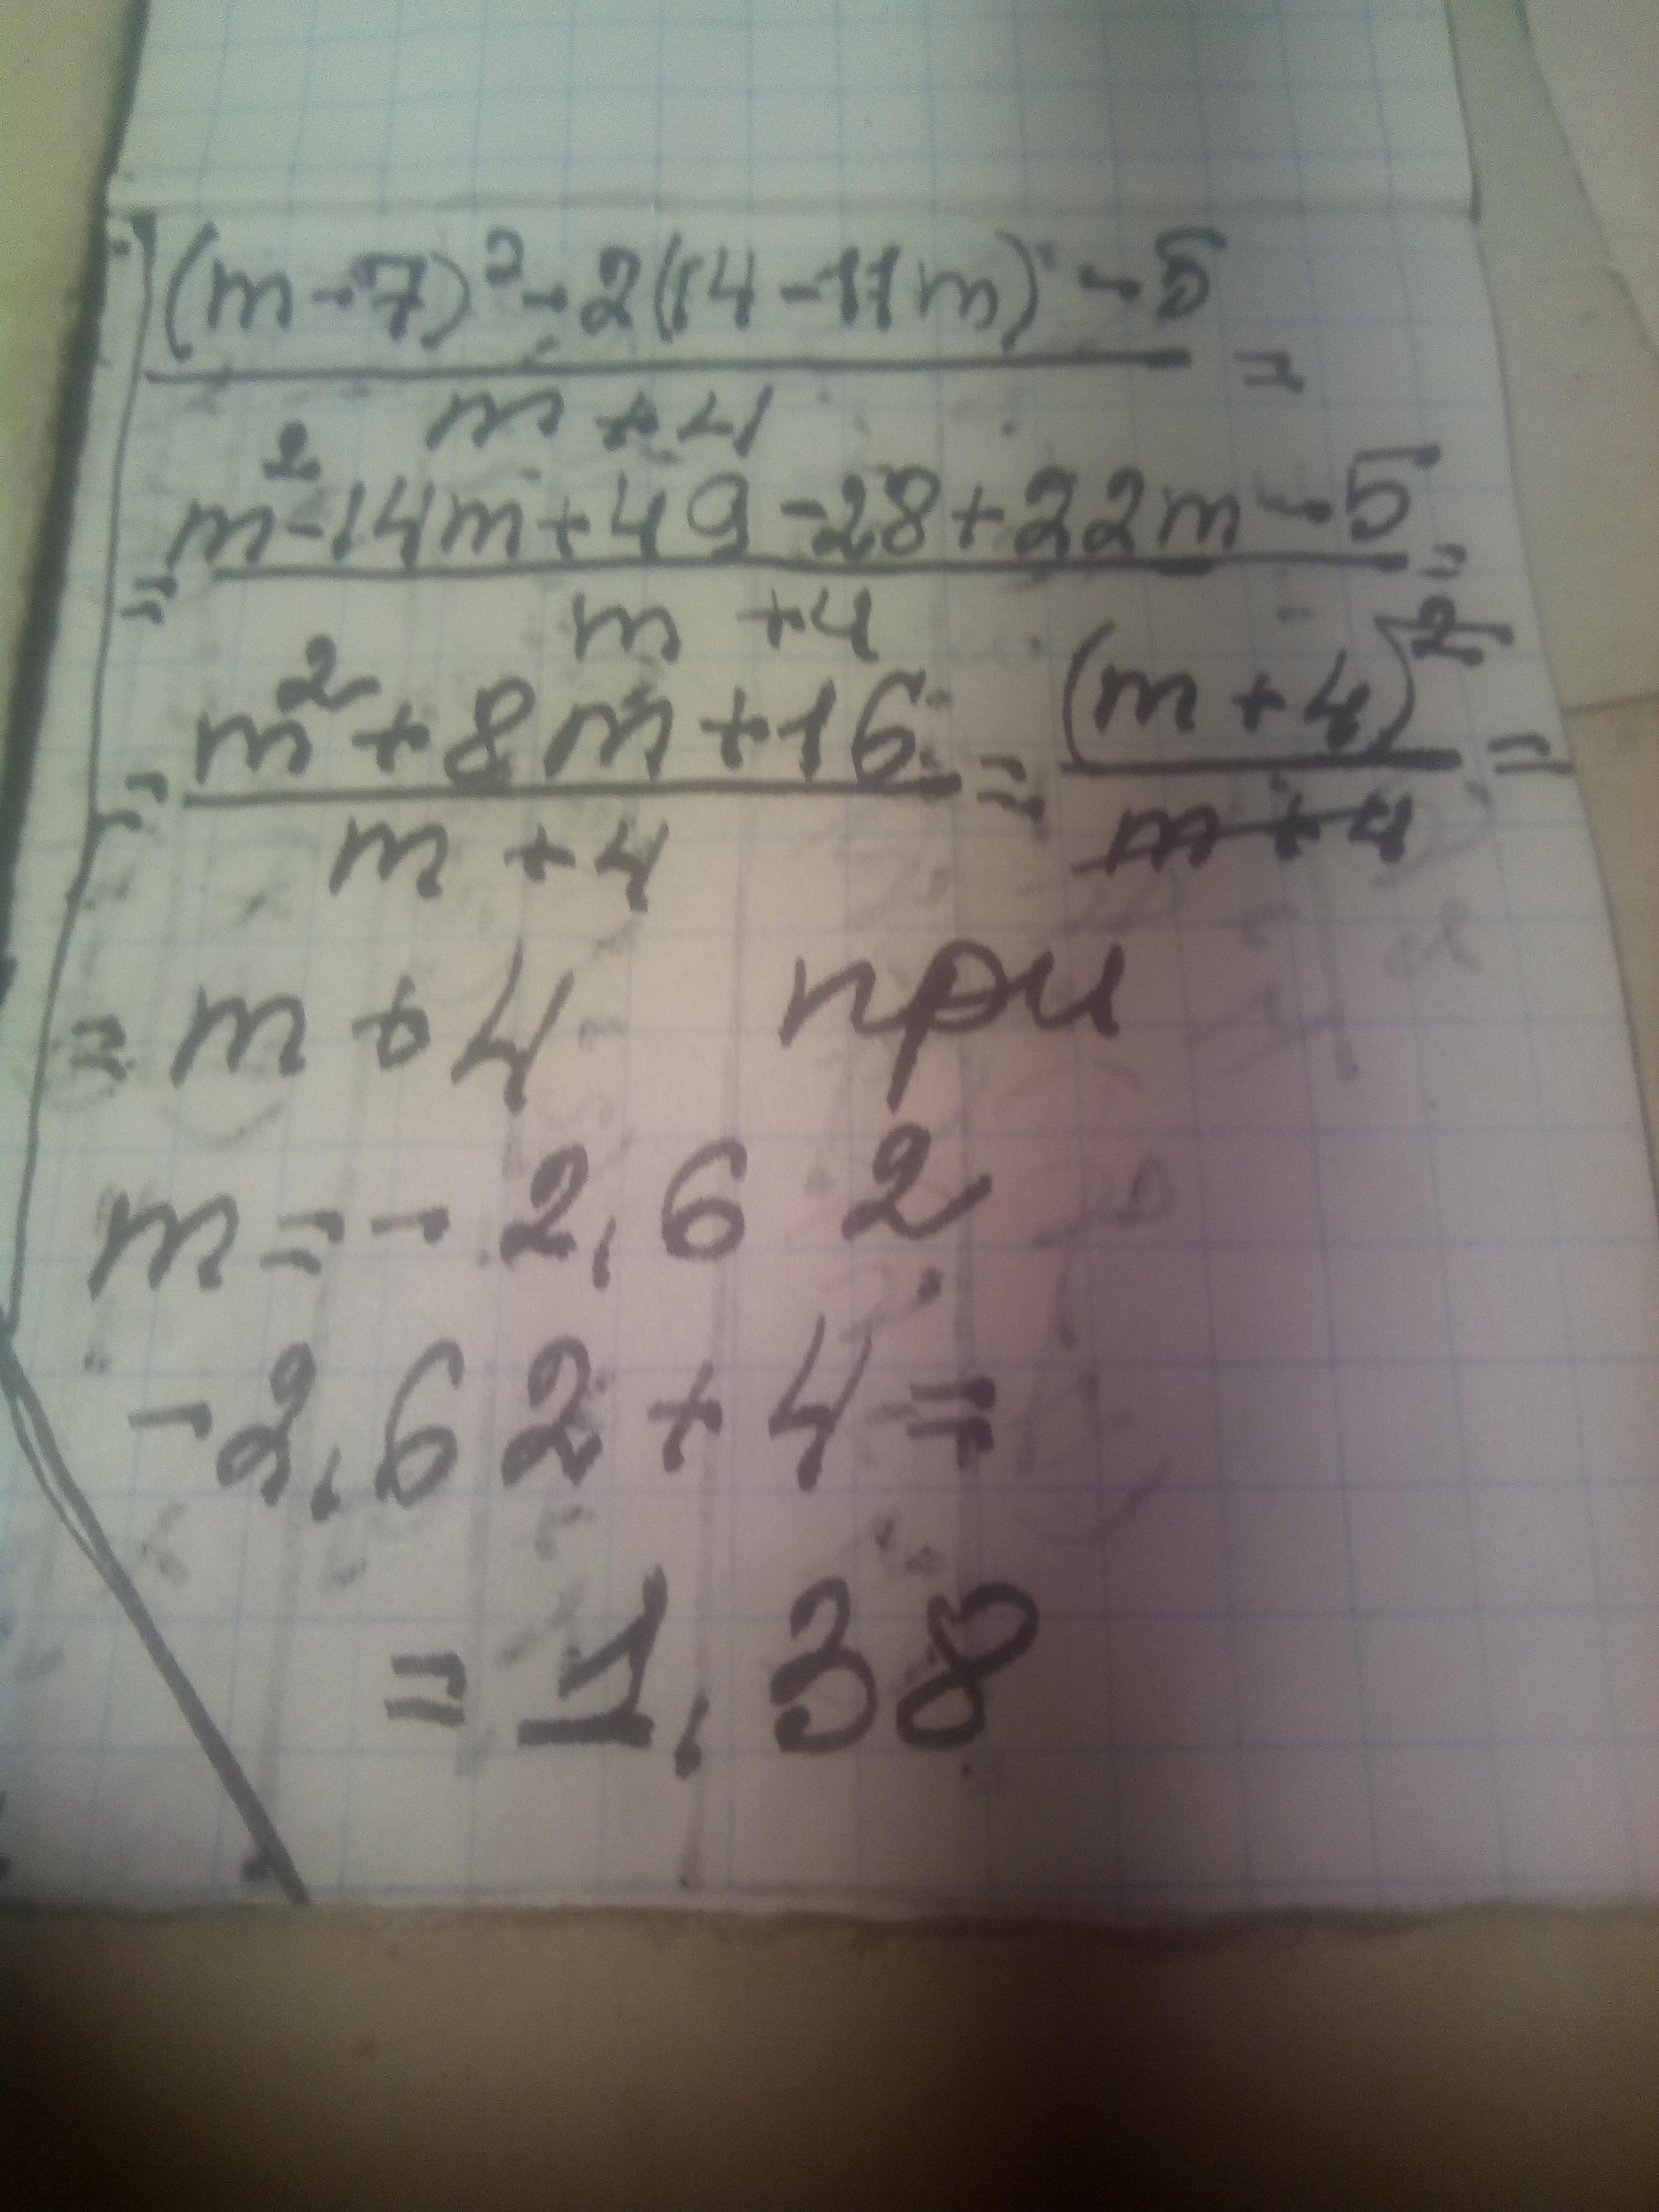 (m-7)²-2(14-11m)-5
m+4 =
m²-14m+49-28+22m-5
= m+4 =
= m²+8m+16 / m+4 = (m+4)² / m+4 =
= m+4 при
m=-2,62
-2,62+4=
=1,38